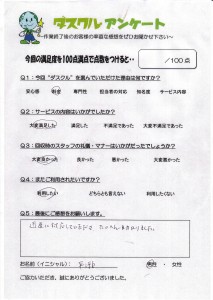 ダスクル アンケート
~作業終了後のお客様の率直な感想をぜひお聞かせ下さい~
今回の満足度を100点満点で点数をつけると・・
/100点
Q1:今回“ダスクル”を選んでいただけた理由は何ですか?
安心感 料金 専門性 担当者の対応 知名度 サービス内容
Q2:サービスの内容はいかがでしたか?
大変満足した 満足した 不満足であった 大変不満足であった
Q3:回収時のスタッフの礼儀・マナーはいかがだったでしょうか?
大変良かった 良かった 悪かった 大変悪かった
Q4:またご利用されたいですか?
利用したい どちらとも言えない 利用したくない
Q5:最後にご感想をお願いします。
お名前(イニシャル):
男性 ・ 女性
ご協力いただき、誠にありがとうございました。